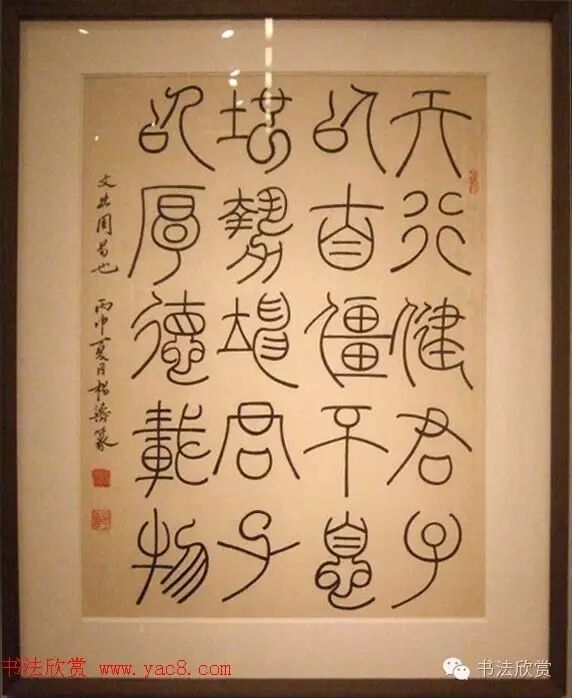 天行健君子
以自彊不息
地勢坤君子
以厚德載物
文出周易也
丙申夏月楊 篆
书法欣赏 www.yac8.com
书法欣赏